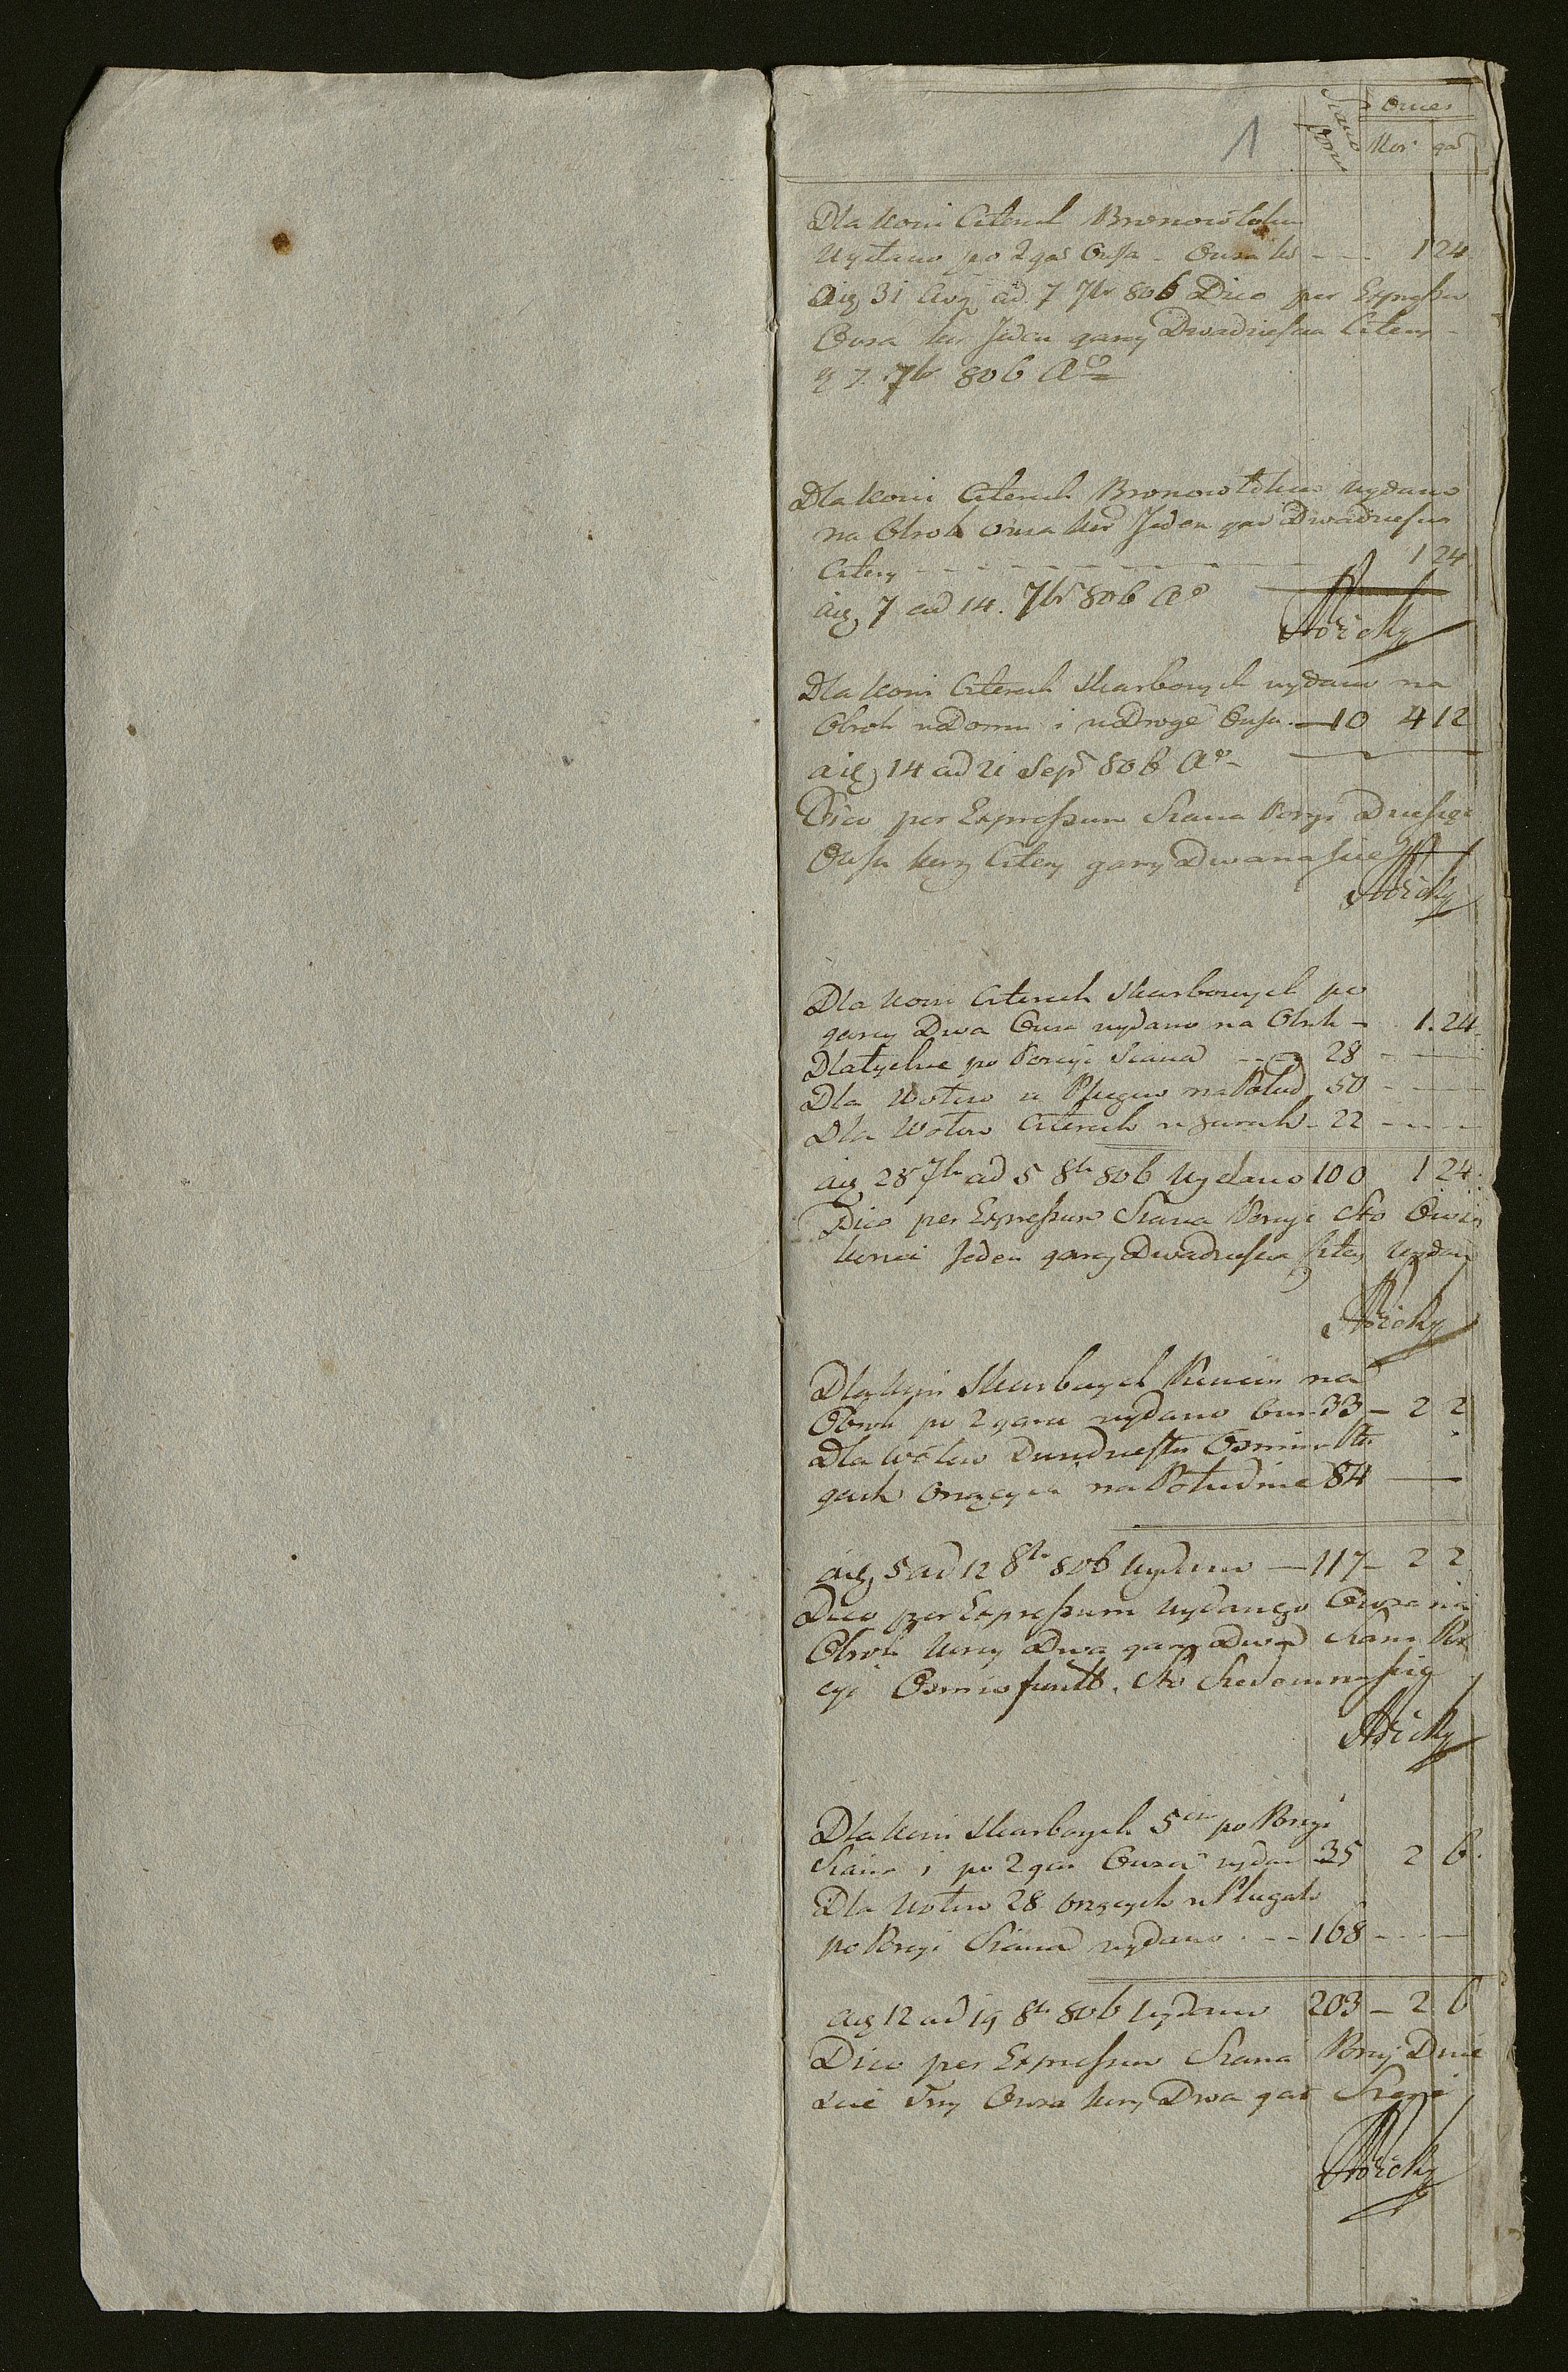 1
Siano porc
Owies
Kor gar
Dla koni Czterech Bronowskich
Wydano po 2 gar Owsa - Owsa kor - - - 1 24
a die 31 Aug ad 7 7br 806 Dico per Expressum
Owsa kor Jeden garcy Dwadziescia Cztery -
d 7. 7br 806 Ao
Dla koni Czterech Bronowskich wydano
na Obrok owsa kor Jeden gar Dwadziescia
Cztery - - - - - - 1 24
a die 7 ad 14. 7br 806 Ao
Dla koni Czterech Skarbowych wydano na
Obrok w Domu i w Droge Owsa - 10 4 12
a die 14 ad 21 Sepr 806 Ao -
Dico per Expressum Siana Porcyi Dziesięc
Owsa korcy Cztery garcy Dwanascie
Dla koni Czterech Skarbowych po
garcy Dwa Owsa wydano na Obrok - 1. 24
Dla tychze po Porcyi Siana - - - 28 - -
Dla Wołow u Pługow na Połud 50 - -
Dla Wołow Czterech w - 22 - - -
a die 28 7br ad 5 8br 806 Wydano 100 1 24
Dico per Expressum Siana Porcyi Sto Owsa
korzec Jeden garcy Dwadziescia Cztery wydano
Dla koni Skarbowych Pieciu na
Obrok po 2 garce wydano Owsa 33 - 2 2
Dla Wołow Dwudziestu Osmiu w Płu
gach Orzących na Południe 84 -
a die 5 ad 12 8br 806 Wydano - 117 - 2 2
Dico per Expressum wydanego Owsa na
Obrok korcy Dwa garcy Dwa Siana Por
cyi Osmio funtt. Sto Siedomnascie
Dla koni Skarbowych 5ciu po Porcyi
Siana i po 2 gar Owsa wydano 35 2 6.
Dla Wołow 28 Orzących w Pługach
po Porcyi Siana wydano - - - 168 - - -
a die 12 ad 19 8br 806 Wydano 203 - 2 6
Dico per Expressum Siana Porcyi Dwie
scie Trzy Owsa korcy Dwa gar Szesc